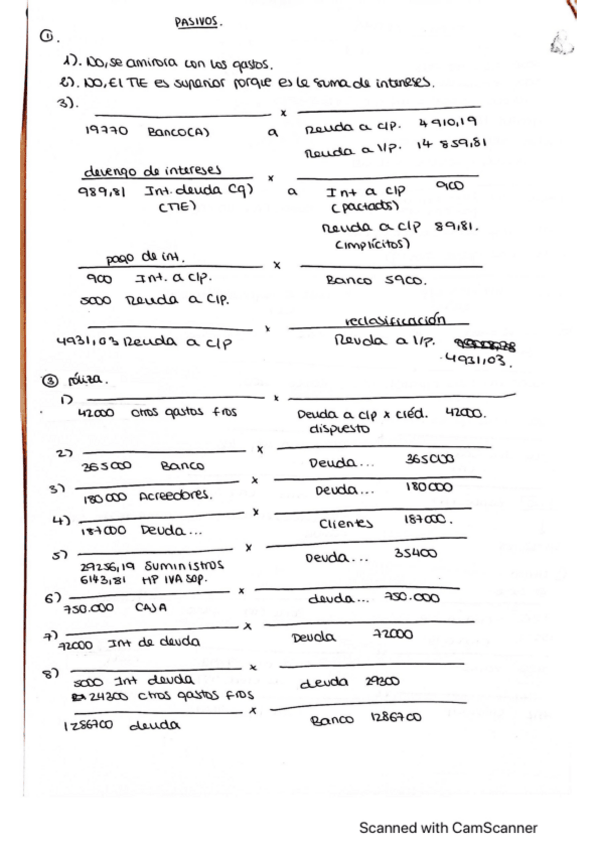 PASIVOS.
①.
1). NO, se aminora con los gastos.
2). NO, El TIE es superior porque es la suma de intereses.
3).
x
19770 BANCO(A) a Deuda a c/p. 4910,19
Deuda a l/p. 14 859,81
devengo de intereses x
989,81 Int. deuda (g) a Int a c/p 900
(TIE) (pactados)
Deuda a c/p 89,81.
(implícitos)
pago de int. x
900 Int. a c/p. Banco 5900.
5000 Deuda a c/p.
x reclasificación
4931,03 Deuda a c/p Deuda a l/p.
4931,03.
③ Póliza.
1) x
42000 Otros gastos fros Deuda a c/p x créd. 42000.
dispuesto
2) x
365000 Banco Deuda... 365000
3) x
180000 Acreedores. Deuda... 180000
4) x
187000 Deuda... Clientes 187000.
5) x
29256,19 Suministros Deuda... 35400
6143,81 HP IVA sop.
6) x
750.000 CAJA deuda... 750.000
7) x
72000 Int de deuda Deuda 72000
8) x
5000 Int deuda deuda 29300
24300 Otros gastos fros
x
1286700 deuda Banco 1286700
Scanned with CamScanner